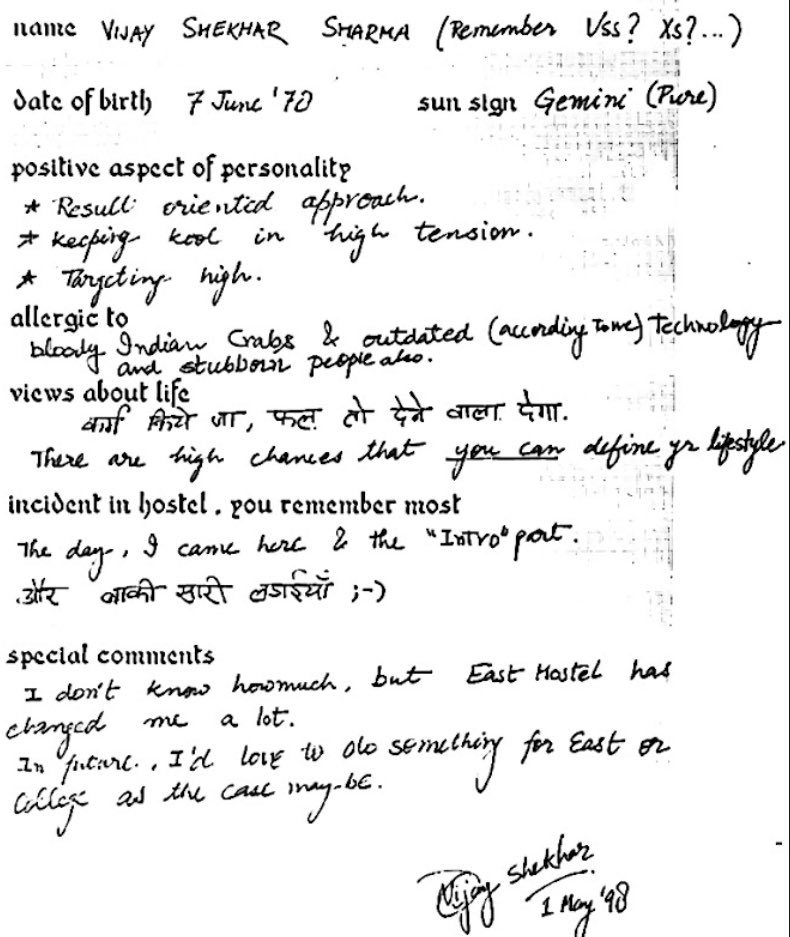 name VIJAY SHEKHAR SHARMA (Remember Vss? Xs?...)
date of birth 7 June '78 sun sign Gemini (Pure)
positive aspect of personality
* Result oriented approach.
* keeping kool in high tension.
* Targeting high.
allergic to
bloody Indian Crabs & outdated (according to me) Technology
and stubborn people also.
views about life
कर्म किये जा, फल तो देने वाला देगा.
There are high chances that you can define yr lifestyle
incident in hostel, you remember most
The day, I came here & the "INTRO" part.
और बाकी सारी लडाईयाँ ;-)
special comments
I don't know howmuch, but East Hostel has
changed me a lot.
In future., I'd love to do something for East or
College as the case may-be.
Vijay Shekhar
1 May '98